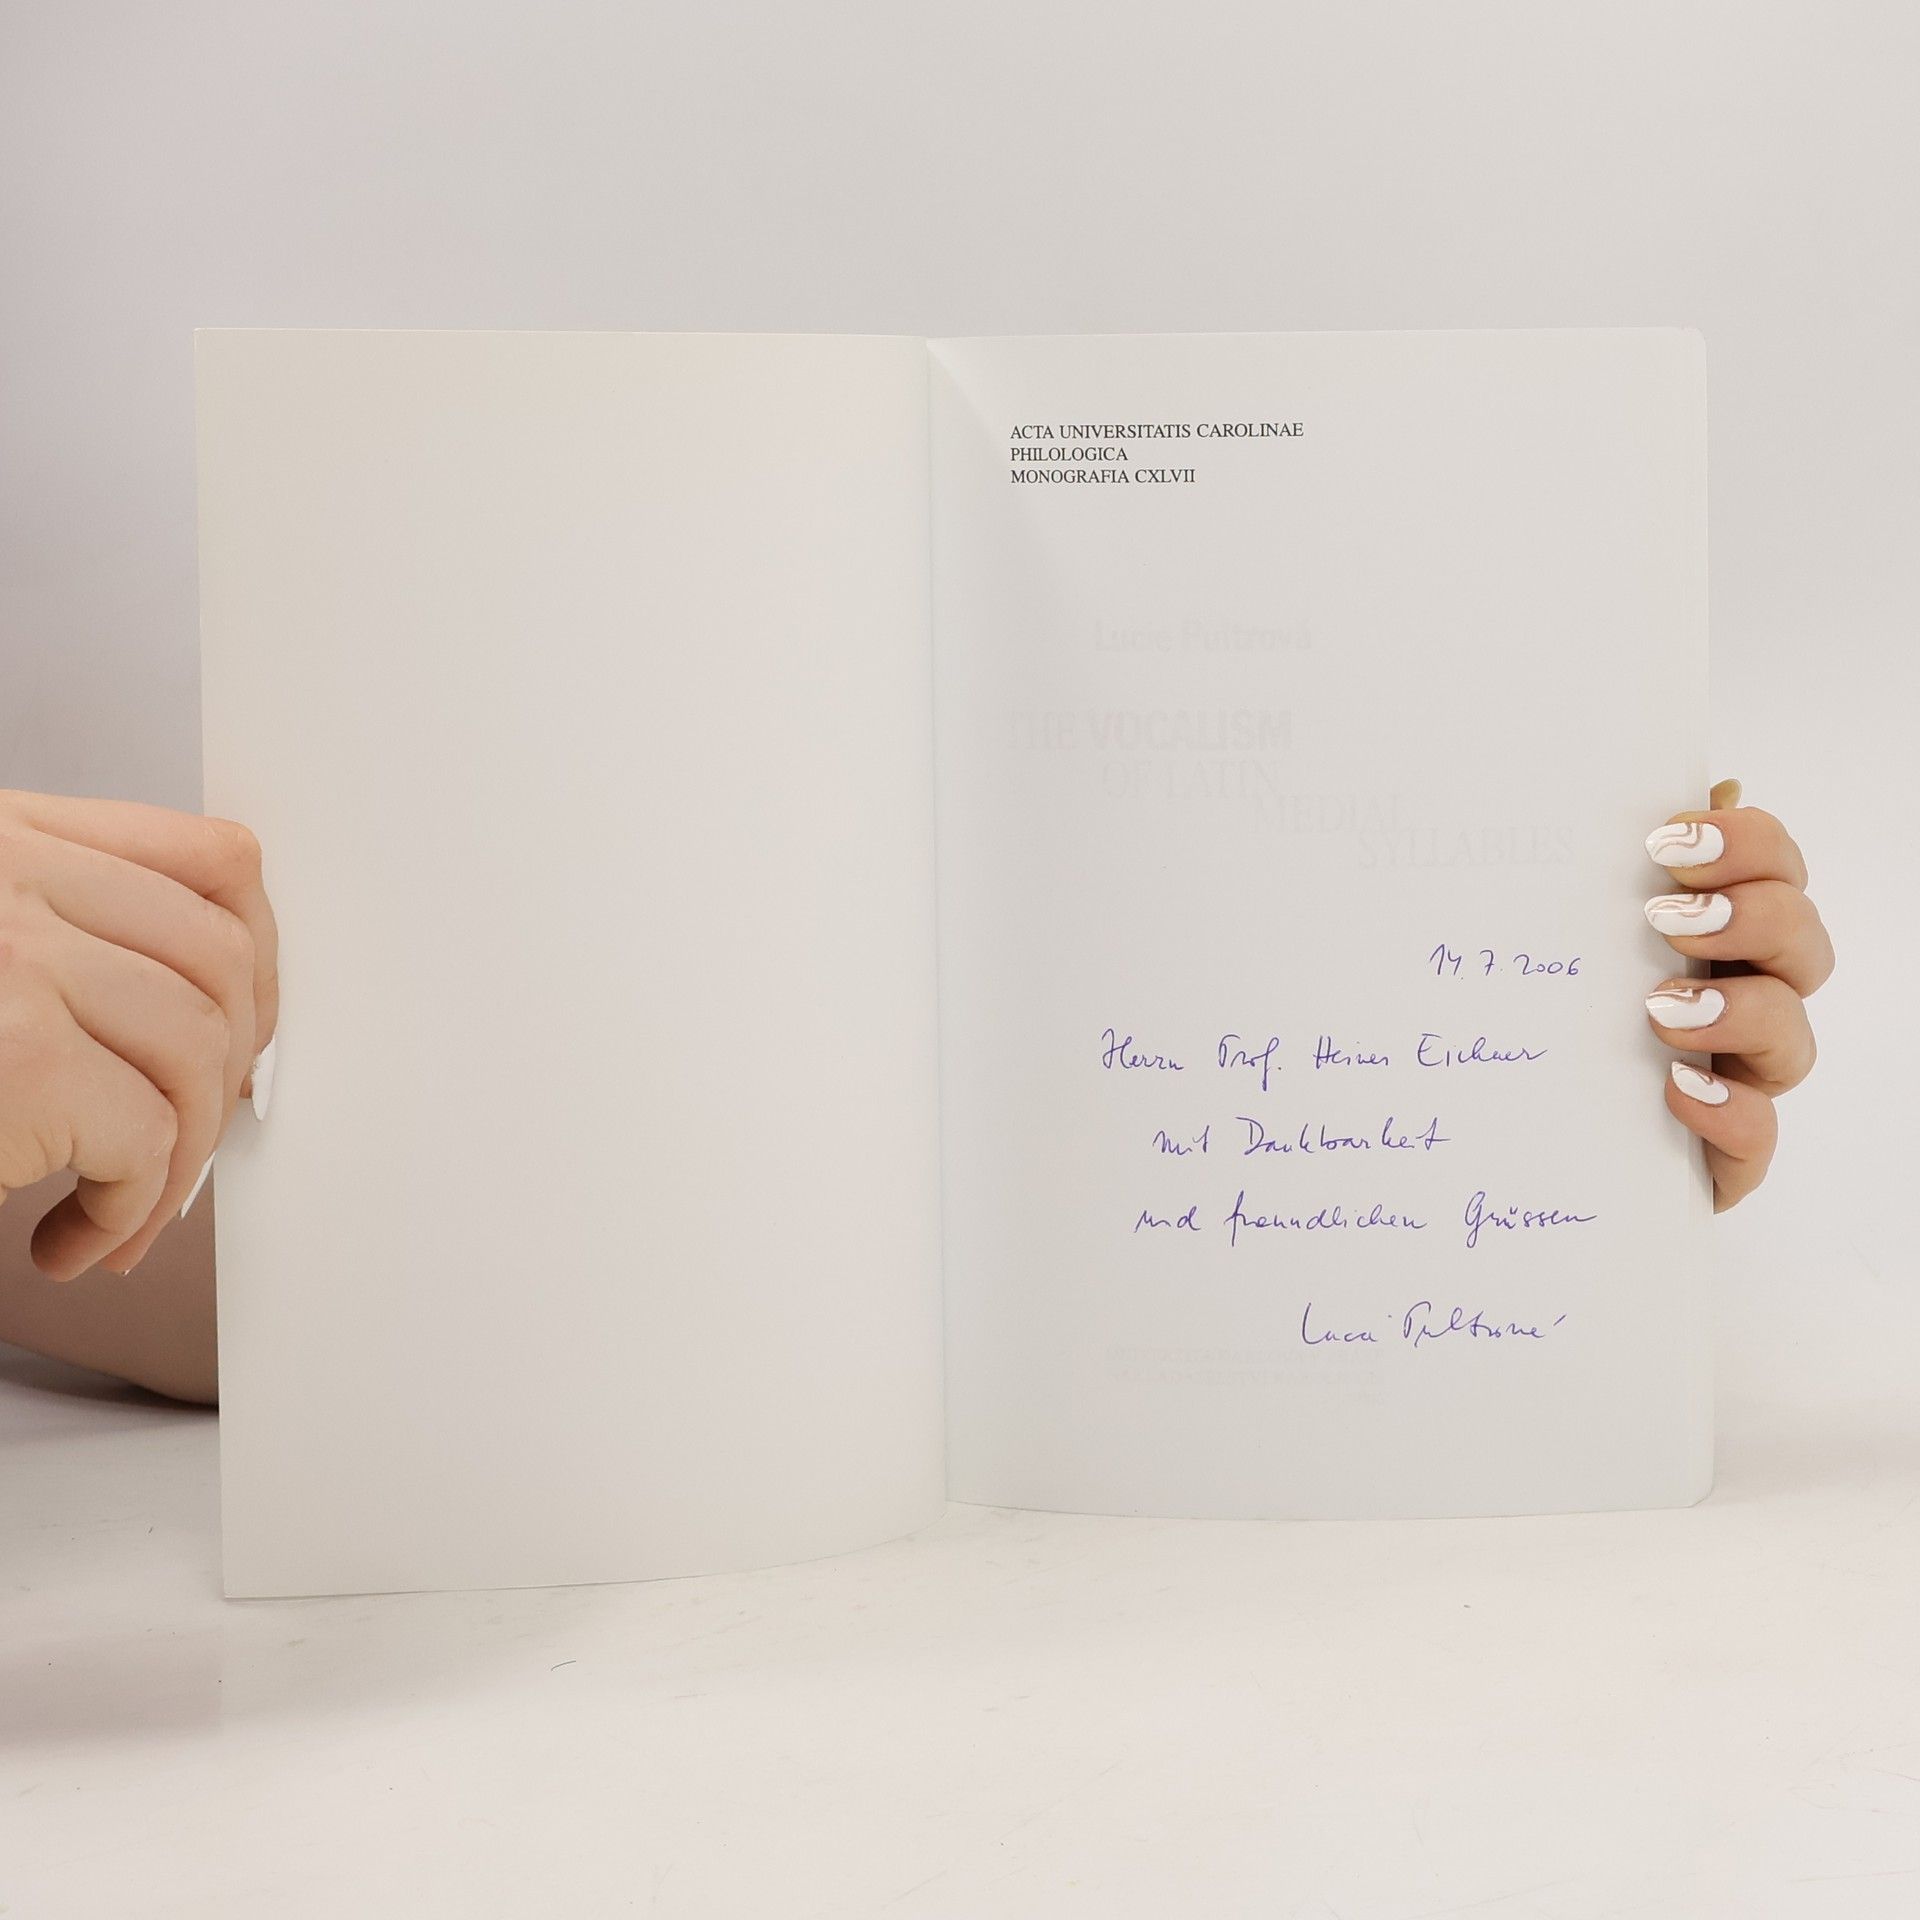 ACTA UNIVERSITATIS CAROLINAE
PHILOLOGICA
MONOGRAFIA CXLVII
Lucie Pultrová
THE VOCALISM
OF LATIN
MEDIAL
SYLLABLES
14. 7. 2006
Herrn Prof. Heiner Eichner
mit Dankbarkeit
und freundlichen Grüssen
Lucie Pultrová